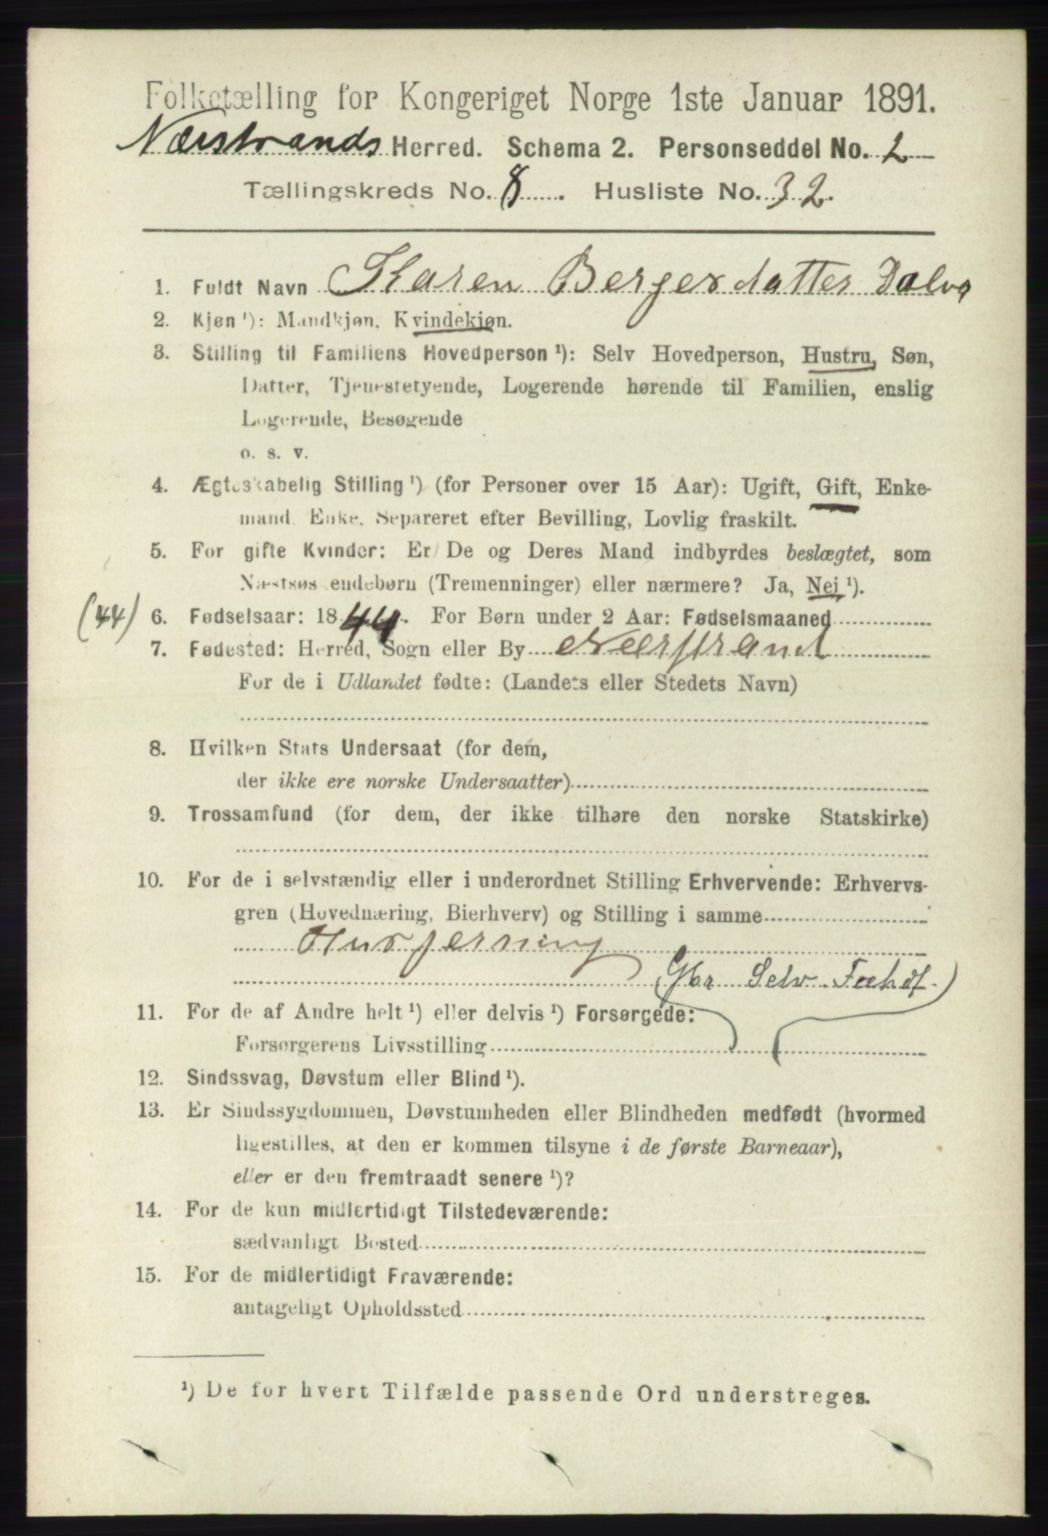 Folketælling for Kongeriget Norge 1ste Januar 1891.
Nærstrands Herred. Schema 2. Personseddel No. 2
Tællingskreds No. 8. Husliste No. 32.
1. Fuldt Navn Karen Bergersdatter Dalva
2. Kjøn ¹): Mandkjøn, Kvindekjøn.
3. Stilling til Familiens Hovedperson ¹): Selv Hovedperson, Hustru, Søn,
Datter, Tjenestetyende, Logerende hørende til Familien, enslig
Logerende, Besøgende
o. s. v.
4. Ægteskabelig Stilling ¹) (for Personer over 15 Aar): Ugift, Gift, Enke-
mand, Enke, Separeret efter Bevilling, Lovlig fraskilt.
5. For gifte Kvinder: Er De og Deres Mand indbyrdes beslægtet, som
Næstsøskendebørn (Tremenninger) eller nærmere? Ja, Nej ¹).
(44) 6. Fødselsaar: 1844. For Børn under 2 Aar: Fødselsmaaned
7. Fødested: Herred, Sogn eller By Nærstrand
For de i Udlandet fødte: (Landets eller Stedets Navn)
8. Hvilken Stats Undersaat (for dem,
der ikke ere norske Undersaatter)
9. Trossamfund (for dem, der ikke tilhøre den norske Statskirke)
10. For de i selvstændig eller i underordnet Stilling Erhvervende: Erhvervs-
gren (Hovednæring, Bierhverv) og Stilling i samme
Husgerning
(Gbr Selv
11. For de af Andre helt ¹) eller delvis ¹) Forsørgede:
Forsørgerens Livsstilling
12. Sindssvag, Døvstum eller Blind ¹).
13. Er Sindssygdommen, Døvstumheden eller Blindheden medfødt (hvormed
ligestilles, at den er kommen tilsyne i de første Barneaar),
eller er den fremtraadt senere ¹)?
14. For de kun midlertidigt Tilstedeværende:
sædvanligt Bosted
15. For de midlertidigt Fraværende:
antageligt Opholdssted
¹) De for hvert Tilfælde passende Ord understreges.